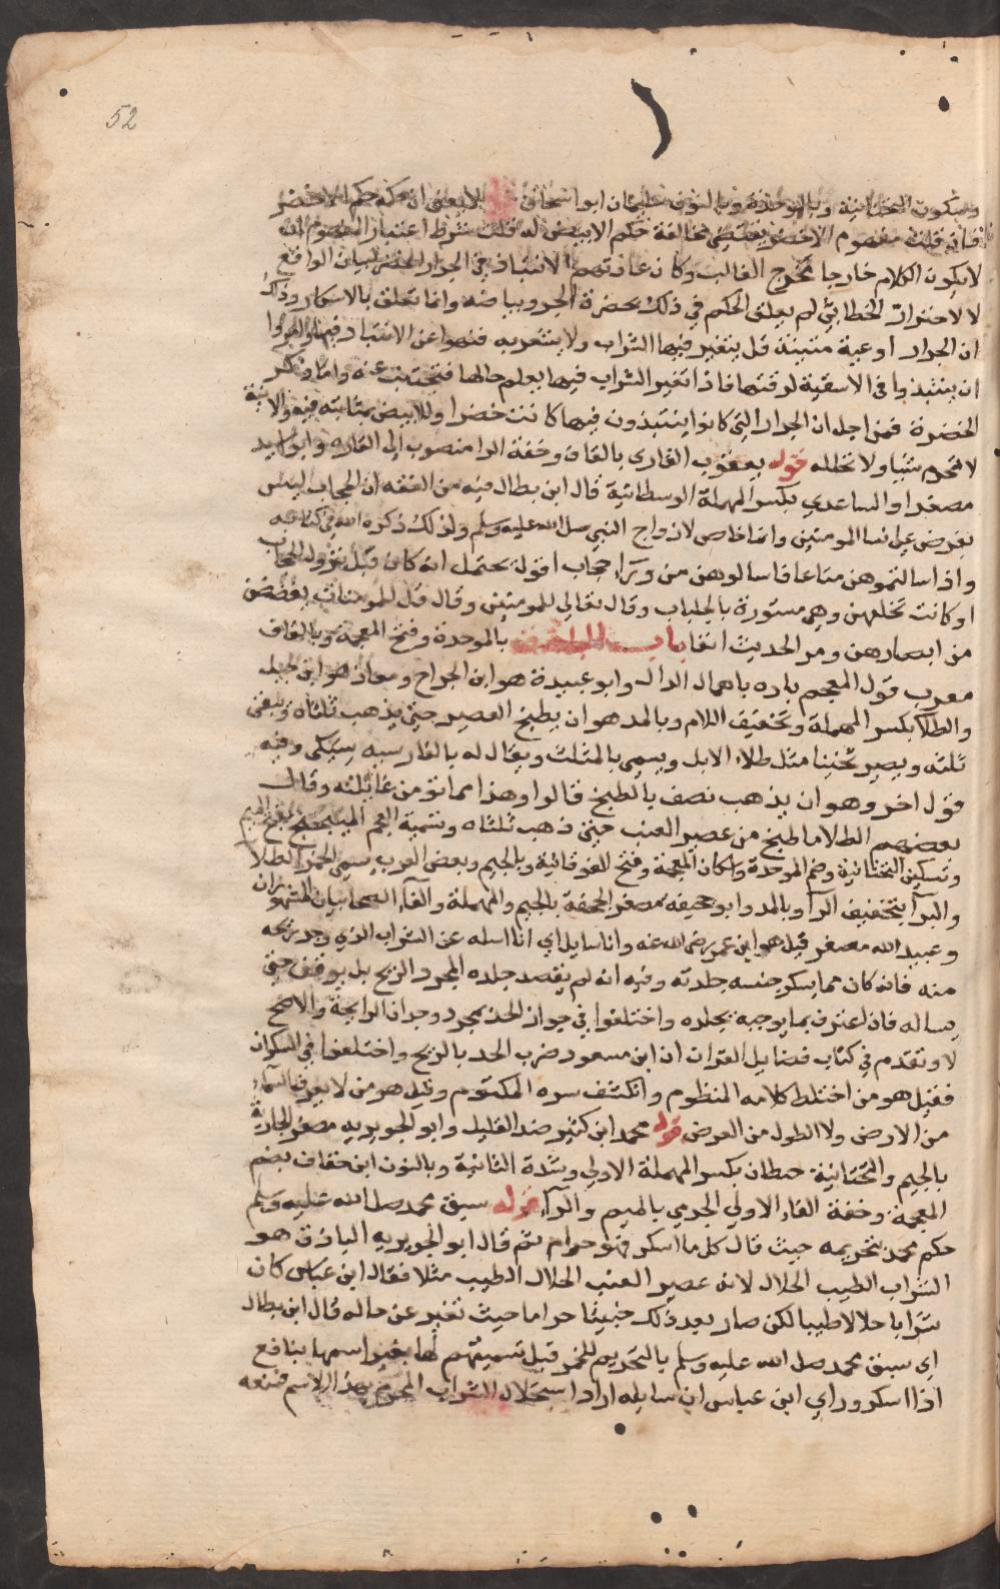 52
وسكون التحتانية وبالموحدة وبالنون سليمان ابو اسحاق قوله لا يعنى ان حكمه حكم الاخضر
فان قلت مفهوم الاخضر يقتضي مخالفة حكم الابيض له قلت شرط اعتبار المفهوم ان
لا يكون الكلام خارجا مخرج الغالب وكان عادتهم الانتباذ في الجرار الخضر لبيان الواقع
لا للاحتراز الخطابي لم يعلق الحكم في ذلك بخضرة الجر وبياضه وانما تعلق بالاسكار وذلك
ان الجرار اوعية متينة قد يتغير فيها الشراب ولا يشعر به فنهوا عن الانتباذ فيها وامروا
ان ينتبذوا في الاسقية لرقتها فاذا تغير الشراب فيها يعلم حالها فيجتنب عنه واما ذكر
الخضرة فمن اجل ان الجرار التي كانوا ينتبذون فيها كانت خضرا والابيض بمثابته فيه والانية
لا تحرم شيا ولا تحلله قوله يعقوب القارى بالقاف وخفة الرا منصوب الى القاره وابو اسيد
مصغرا والساعدي بكسر المهملة الوسطانية قال ابن بطال فيه من الفقه ان الحجاب ليس
بفرض على نسا المومنين وانما خاص لازواج النبي صلى الله عليه وسلم ولذلك ذكره الله في كتابه
واذا سالتموهن متاعا فاسالوهن من ورآء حجاب اقول يحتمل انه كان قبل نزول الحجاب
او كانت تخلهن وهي مستورة بالجلباب وقال تعالى للمومنين وقال قل للمومنات يغضضن
من ابصارهن ومر الحديث انفا باب الباذق بالموحدة وفتح المعجمة وبالقاف
معرب قول المعجم باده باهمال الدال وابو عبيدة هو ابن الجراح ومعاذ هو ابن جبل
والطلآ بكسر المهملة وتخفيف اللام وبالمد هو ان يطبخ العصير حتى يذهب ثلثاه ويبقى
ثلثه ويصير ثخينا مثل طلاء الابل ويسمى بالمثلث ويقال له بالفارسيه سيكى وفيه
قول اخر وهو ان يذهب نصف بالطبخ قالوا وهذا مما تؤمن غائلته وقال
بعضهم الطلا ما طبخ من عصير العنب حتى ذهب ثلثاه وتسمية العجم الميبختج بفتح الميم
وتسكين التحتانية وضم الموحدة واسكان المعجمة وفتح الفوقانية وبالجيم وبعض العرب يسمي الخمر الطلآ
والبرآ بتخفيف الرآ وبالمد وابو جحيفه مصغر الجحفة بالجيم والمهملة والفآء الصحابيان المشهوران
وعبيد الله مصغر قيل هو ابن عمر رضي الله عنه وانا سايل اي انا اساله عن الشراب الذي وجد ريحه
منه فان كان مما يسكر جنسه جلدته وفيه انه لم يقصد جلده بمجرد الريح بل يوقف حتى
يساله فان اعترف بما يوجبه يجلده واختلفوا في جواز الحد بمجرد وجدان الرايحة والاصح
لا وتقدم في كتاب فضايل القران ان ابن مسعود ضرب الحد بالريح واختلفوا في السكران
فقيل هو من اختلط كلامه المنظوم وانكشف سره المكتوم وقيل هو من لا يعرف السمآء
من الارض ولا الطول من العرض قوله محمد ابن كثير ضد القليل وابو الجويريه مصغر الجارية
بالجيم والتحتانية حطان بكسر المهملة الاولى وشدة الثانية وبالنون ابن خفاف بضم
المعجمة وخفة الفاء الاولي الجرمي بالميم والرآء قوله سبق محمد صلى الله عليه وسلم
حكم محمد بتحريمه حيث قال كل ما اسكر فهو حرام ثم قال ابو الجويريه الباذق هو
الشراب الطيب الحلال لانه عصير العنب الحلال الطيب مثلا فقال ابن عباس كان
شرابا حلالا طيبا لكن صار بعد ذلك خبيثا حراما حيث تغير عن حاله قال ابن بطال
اي سبق محمد صلى الله عليه وسلم بالتحريم للخمر قبل تسميتهم لها بغير اسمها بنافع
اذا اسكر وراي ابن عباس ان سايله اراد استحلال الشراب المحرم بهذا الاسم فمنعه